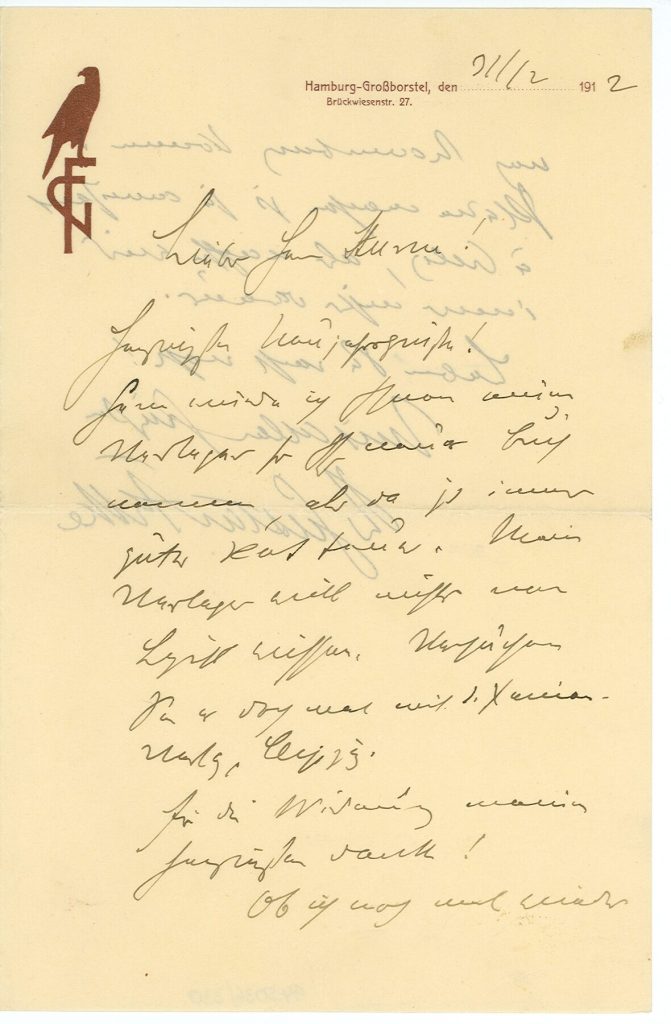 Hamburg-Großborstel, den 31/12 1912
Brückwiesenstr. 27.
Lieber Herr Sturm!
Herzlichsten Neujahrsgruß!
Gern würde ich Ihnen meinen
Verleger für Ihr neues Buch
nennen, aber da ist immer
guter Rat teuer. Mein
Verleger will nichts von
Lyrik wissen. Versuchen
Sie es doch mal mit d. Xenien-
Verlg, Leipzig.
Für die Widmung meinen
herzlichsten Dank!
Ob ich noch mal wieder